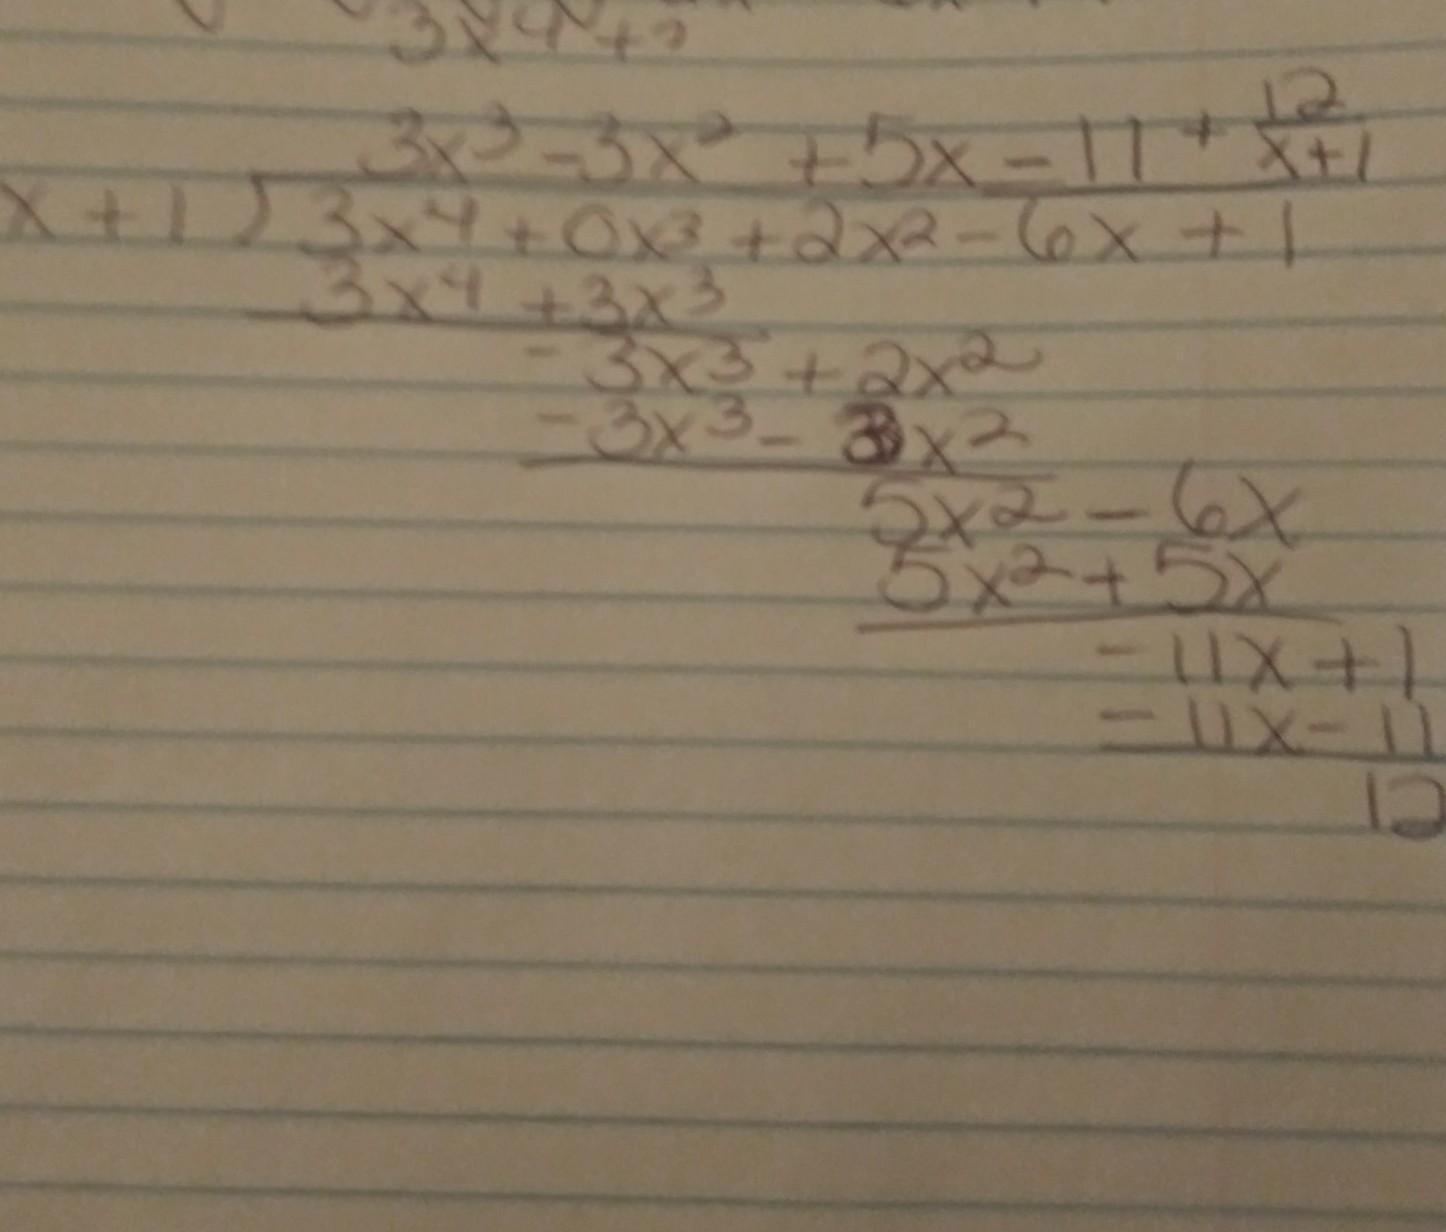 3x4+2
12
3x³-3x² +5x-11 + x+1
x+1)3x4+0x3+2x2-6x+1
3x4+3x3
-3x3+2x2
-3x3-3x2
5x2-6x
5x2+5x
-11x+1
-11x-11
12